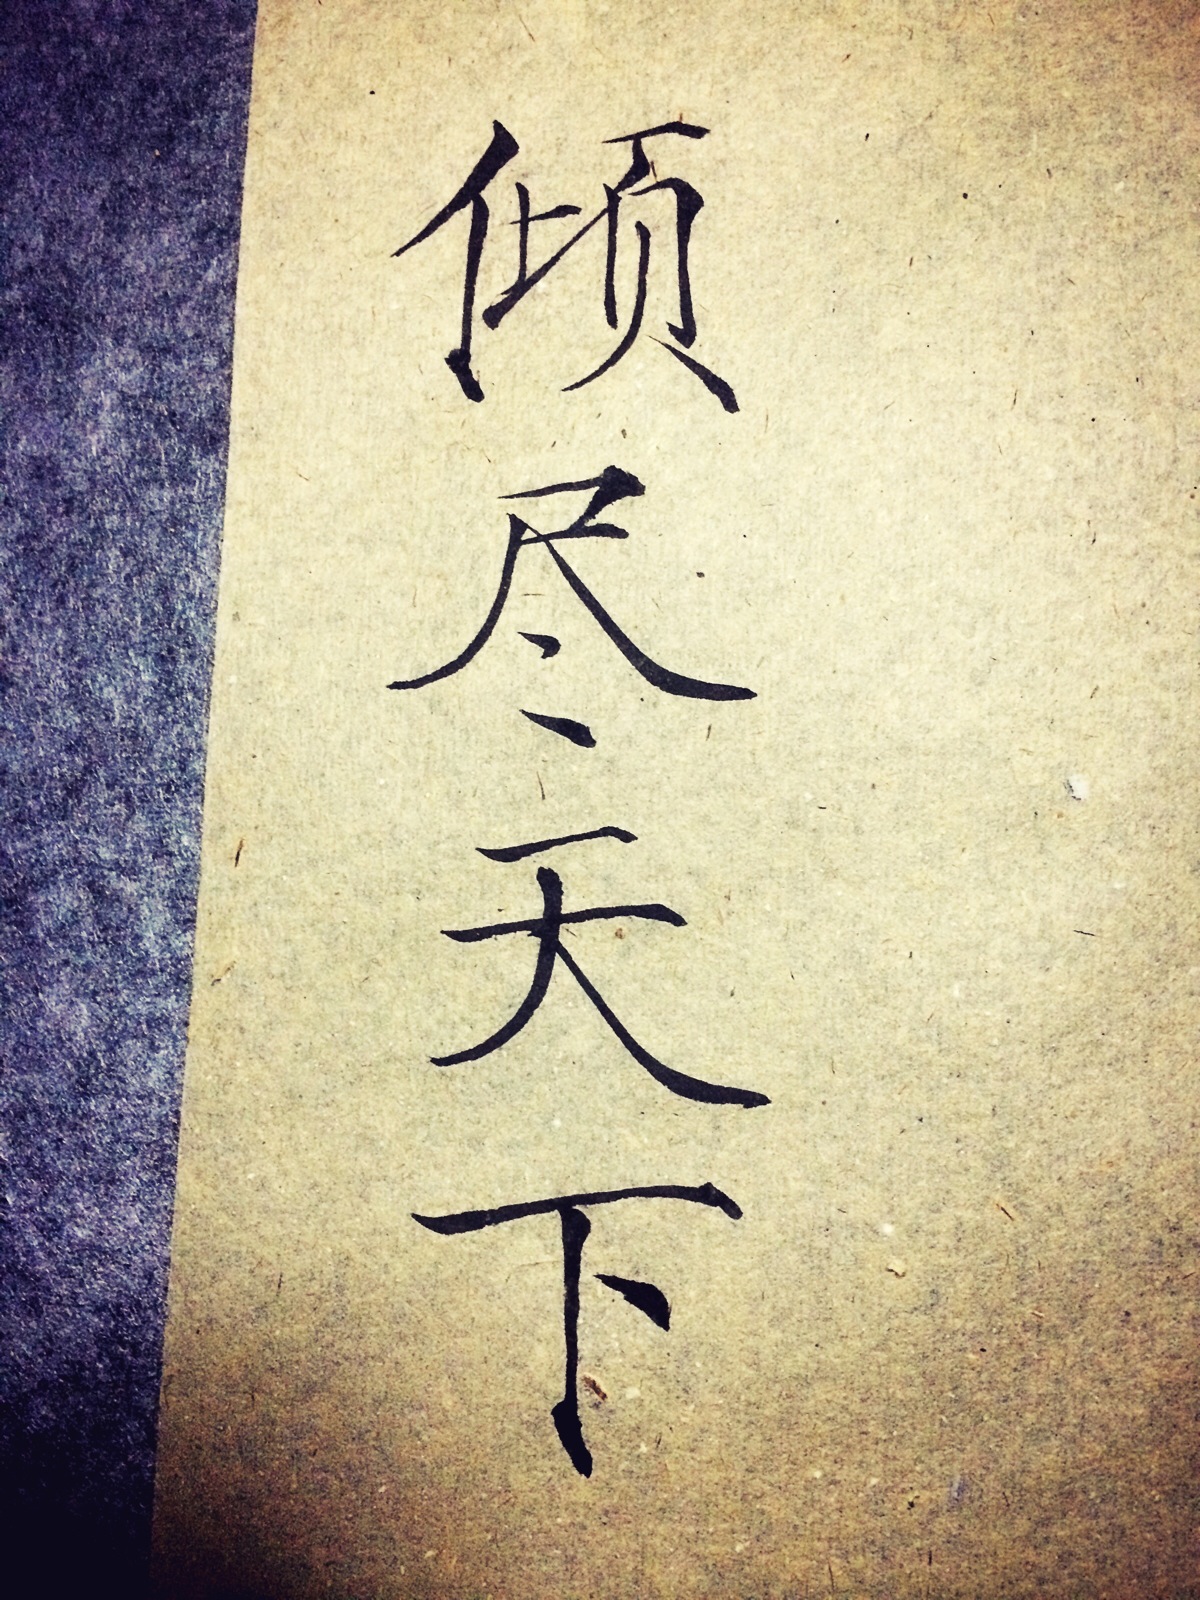 倾尽天下